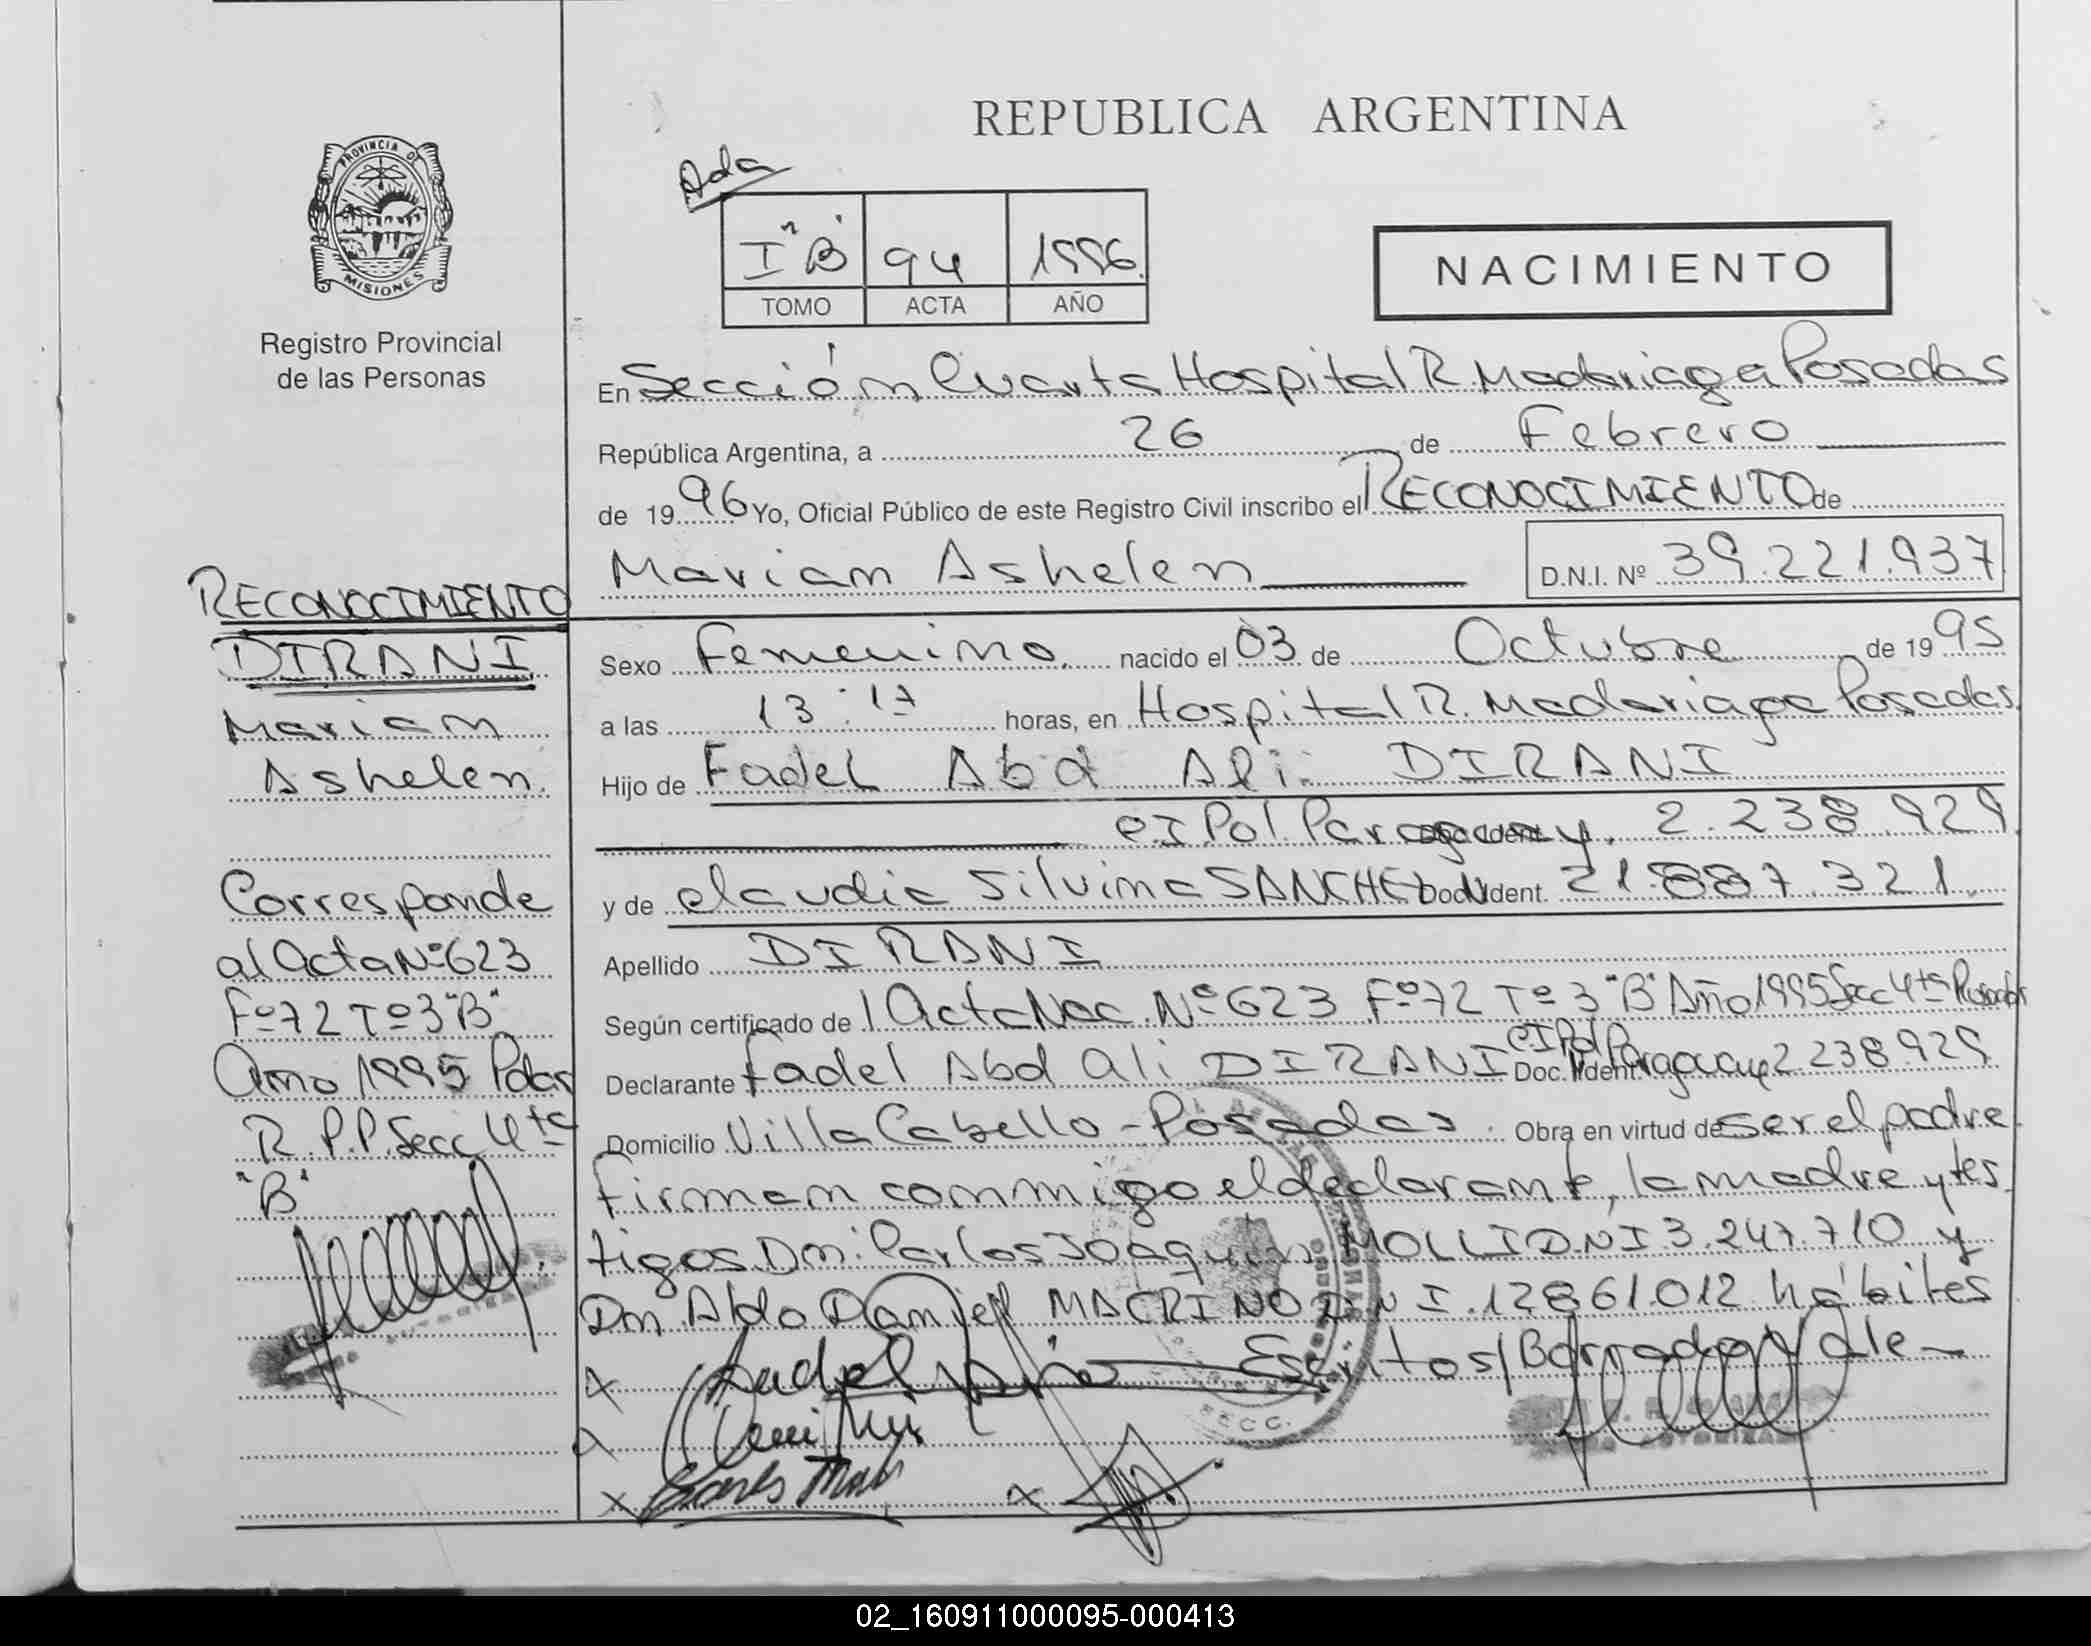 REPUBLICA ARGENTINA
PROVINCIA DE
MISIONES
Registro Provincial
de las Personas
Ada
I "B" 94 1996.
TOMO ACTA AÑO
NACIMIENTO
En Sección Cuarta Hospital R. Madariaga Posadas
República Argentina, a 26 de Febrero
de 1996 Yo, Oficial Público de este Registro Civil inscribo el RECONOCIMIENTO de
Mariam Ashelen D.N.I. Nº 39.221.937
Sexo Femenino. nacido el 03 de Octubre de 1995
a las 13:17 horas, en Hospital R. Madariaga Posadas.
Hijo de Fadel Abd Ali DIRANI
CI. Pol. Paraguay. 2.238.929
y de Claudia Silvina SANCHEZ Doc. Ident. 21.887.321.
Apellido DIRANI
Según certificado de l Acta Nac. Nº 623 Fº 72 Tº 3 "B" Año 1995 Secc 4ta Posadas
Declarante Fadel Abd Ali DIRANI Doc. Ident. CI Pol Paraguay 2.238.929
Domicilio Villa Cabello - Posadas. Obra en virtud de ser el padre.
Firman conmigo el declarante, la madre y tes
tigos Dn: Carlos Joaquin MOLLI D.N.I 3.247.710 y
Dn. Aldo Daniel MACRINO D.N.I. 12.861.012 hábiles
Escritos/Borrado Vale
SECC.
RECONOCIMIENTO
DIRANI
Mariam
Ashelen.
Corresponde
al Acta Nº 623
Fº 72 Tº 3 "B"
Año 1995 Pdas
R.P.P. Secc 4ta
"B"
02_160911000095-000413